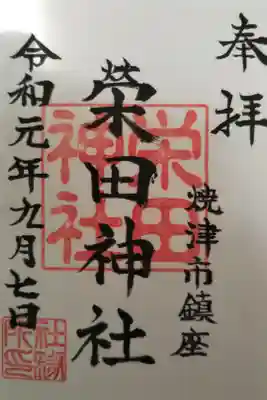 奉拝
焼津市鎮座
栄田神社
令和元年九月七日
栄田神社